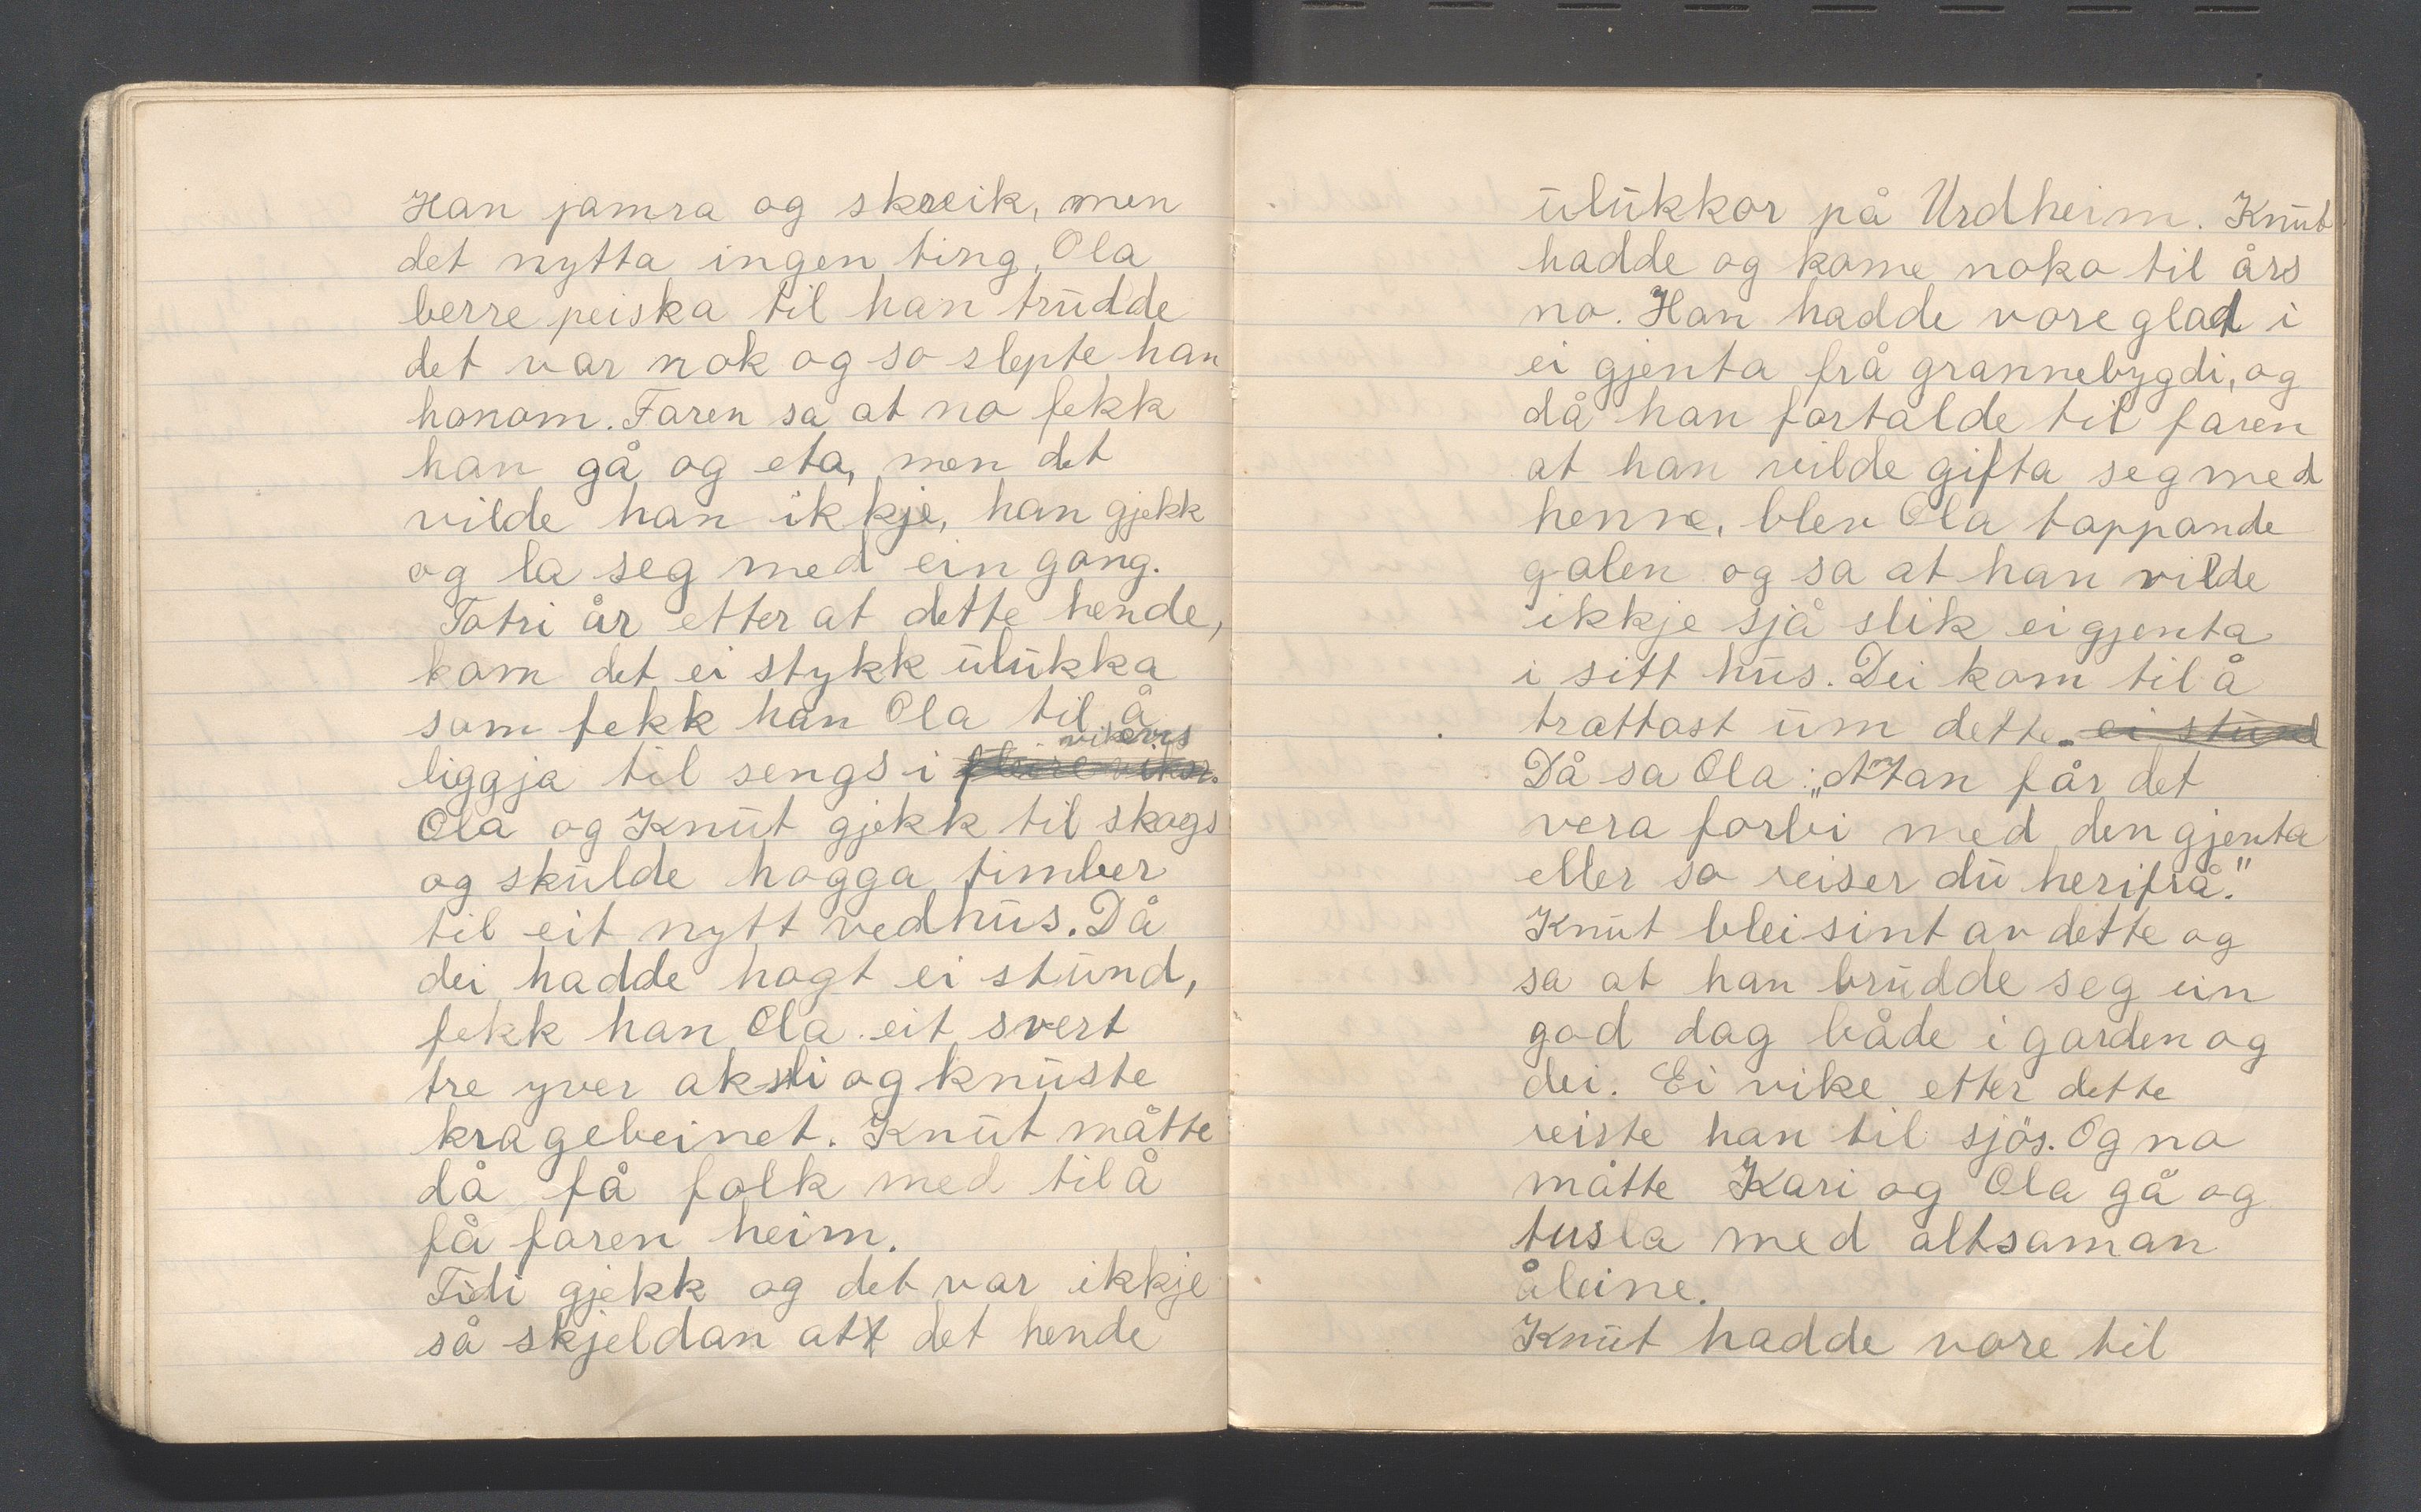 Han jamra og skreik, men
det nytta ingen ting, Ola
berre peiska til han trudde
det var nok og so slepte han
honom. Faren sa at no fekk
han gå og eta, men det
vilde han ikkje, han gjekk
og la seg med ein gong.
Totri år etter at dette hende,
kom det ei stykk ulukka
som fekk han Ola til å
vikevis
liggja til sengs i fleire vikor.
Ola og Knut gjekk til skogs
og skulde hogga timber
til eit nytt vedhus. Då
dei hadde hogt ei stund,
fekk han Ola eit svert
tre yver aksli og knuste
kragebeinet. Knut måtte
då få folk med til å
få faren heim.
Tidi gjekk og det var ikkje
så skjeldan att det hende
ulukkor på Urdheim. Knut
hadde og kome noko til års
no. Han hadde vore glad i
ei gjenta frå grannebygdi, og
då han fortalde til faren
at han vilde gifta seg med
henne, blev Ola toppande
galen og sa at han vilde
ikkje sjå slik ei gjenta
i sitt hus. Dei kom til å
trættast um dette. ei stund
Då sa Ola: „Antan får det
vera forbi med den gjenta
eller so reiser du herifrå."
Knut blei sint av dette og
sa at han brudde seg ein
god dag både i garden og
dei. Ei vike etter dette
reiste han til sjøs. Og no
måtte Kari og Ola gå og
tusla med altsaman
åleine.
Knut hadde vore til